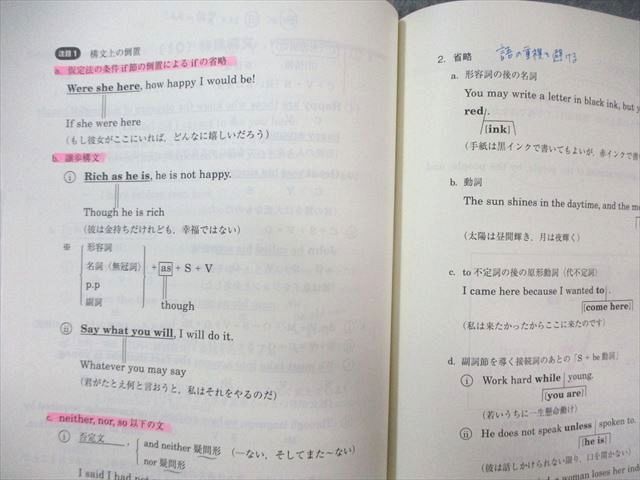 注目1 構文上の倒置
a. 仮定法の条件 if 節の倒置による if の省略
Were she here, how happy I would be!
If she were here
(もし彼女がここにいれば、どんなに嬉しいだろう)
b. 譲歩構文
ⓘ Rich as he is, he is not happy.
Though he is rich
(彼は金持ちだけれども、幸福ではない)
※
形容詞
名詞〈無冠詞〉
p.p
副詞
+ as + S + V
though
ⓘⓘ Say what you will, I will do it.
Whatever you may say
(君がたとえ何と言おうと、私はそれをやるのだ)
c. neither, nor, so 以下の文
ⓘ 否定文 ,
and neither 疑問形
nor 疑問形
(―ない、そしてまた~ない)
2. 省略 語の重複を避ける
a. 形容詞の後の名詞
You may write a letter in black ink, but y
red.
[ink]
(手紙は黒インクで書いてもよいが、赤インクで書
b. 動詞
The sun shines in the daytime, and the mo
(太陽は昼間輝き、月は夜輝く)
c. to 不定詞の後の原形動詞〈代不定詞〉
I came here because I wanted to.
[come here]
(私は来たかったからここに来たのです)
d. 副詞節を導く接続詞のあとの「S + be 動詞」
ⓘ Work hard while young.
[you are]
(若いうちに一生懸命働け)
ⓘⓘ He does not speak unless spoken to.
[he is]
(彼は話しかけられない限り、口を開かない)